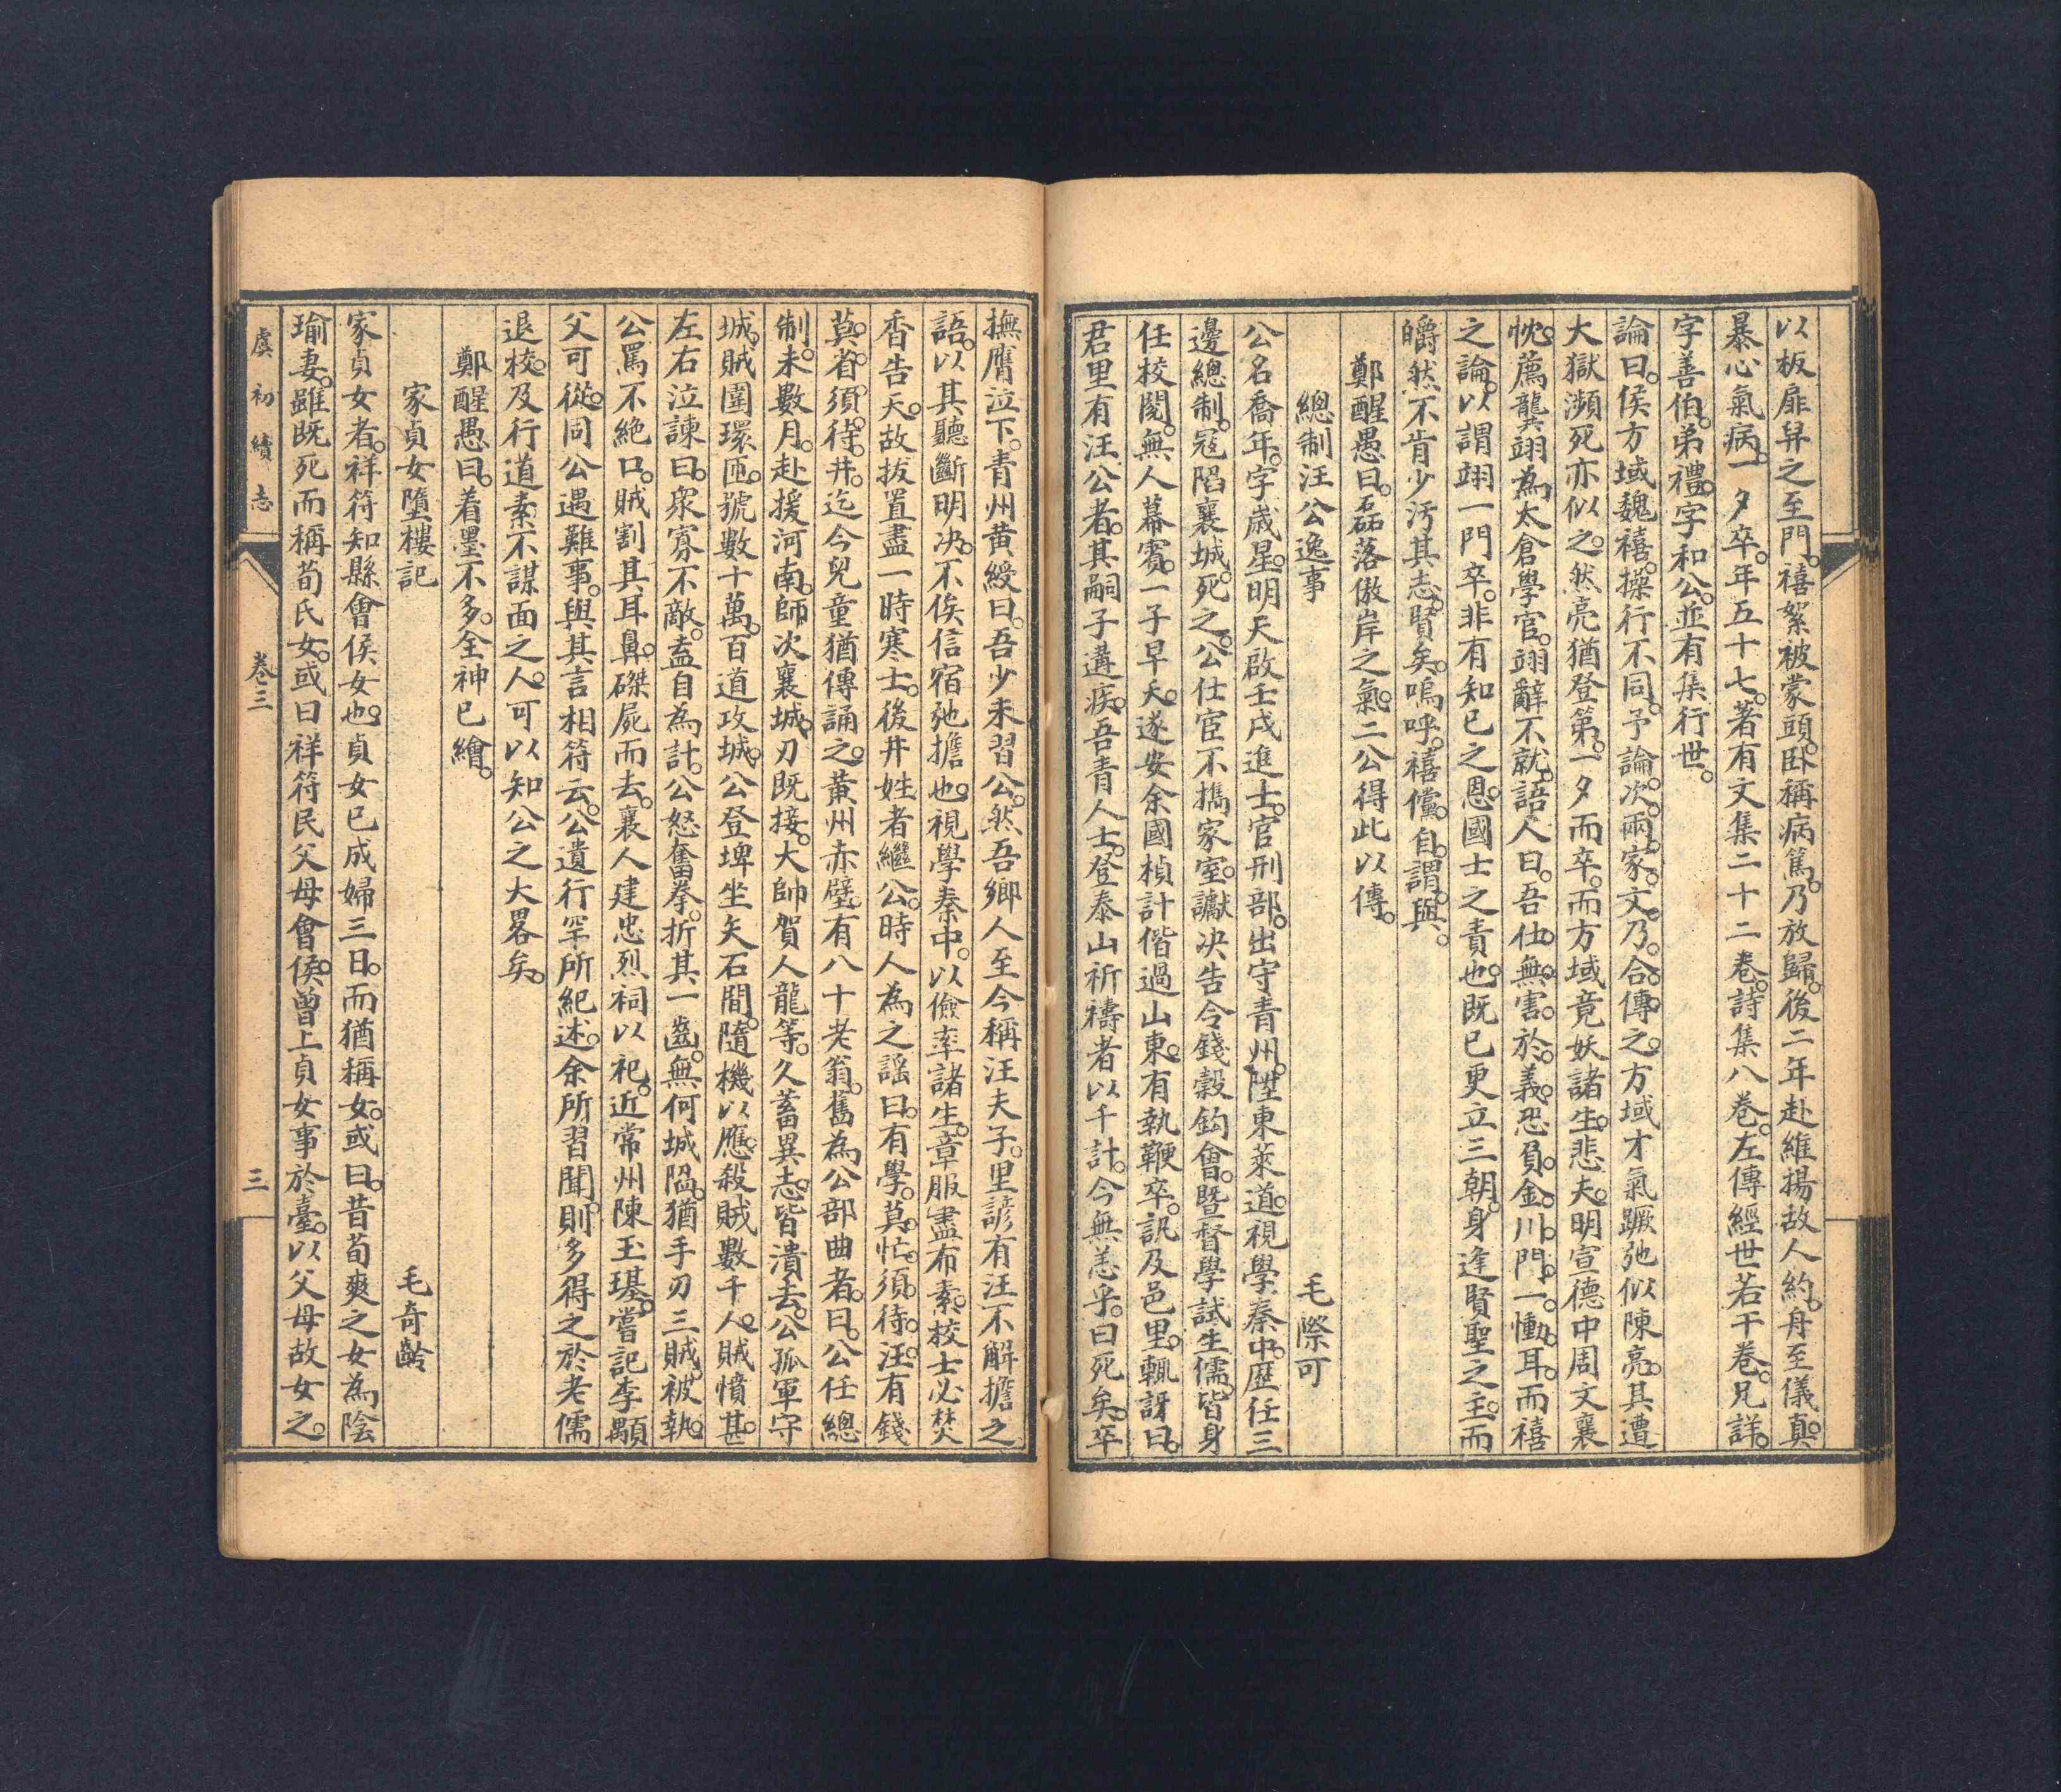 以板扉舁之至門。禧絮被蒙頭。臥稱病篤。乃放歸。後二年赴維揚故人約。舟至儀真。
暴心氣病。一夕卒。年五十七。著有文集二十二卷。詩集八卷。左傳經世若干卷。兄詳。
字善伯。弟禮。字和公。並有集行世。
論曰。侯方域魏禧。操行不同。予論次兩家文。乃合傳之。方域才氣蹶弛似陳亮。其遭
大獄瀕死亦似之。然亮猶登第。一夕而卒。而方域竟妖諸生。悲夫。明宣德中周文襄
忱薦龔翊為太倉學官。翊辭不就。語人曰。吾仕無害於義。恐負金川門一慟耳。而禧
之論。以謂翊一門卒。非有知已之恩。國士之責也。既已更立三朝。身逢賢聖之主。而
皭然不肯少汚其志。賢矣。嗚呼。禧儻自謂與。
鄭醒愚曰。磊落傲岸之氣。二公得此以傳。
總制汪公逸事 毛際可
公名喬年。字歲星。明天啟壬戌進士。官刑部。出守青州。陞東萊道。視學秦中。歷任三
邊總制。寇陷襄城。死之。公仕宦不攜家室。讞决告令錢穀鈎會。暨督學試生儒。皆身
任校閱。無人幕賓。一子早夭。遂安余國楨計偕過山東。有執鞭卒。訊及邑里。輒訝曰。
君里有汪公者。其嗣子遘疾。吾青人士。登泰山祈禱者以千計。今無恙乎。曰死矣。卒
撫膺泣下。青州黄綬曰。吾少未習公。然吾鄉人至今稱汪夫子。里諺有汪不解擔之
語。以其聽斷明决。不俟信宿弛擔也。視學秦中。以儉率諸生。章服盡布素。校士必焚
香告天。故拔置盡一時寒士。後井姓者繼公。時人為之謡曰。有學莫忙。須待汪。有錢
莫省。須待井。迄今兒童猶傳誦之。黄州赤壁有八十老翁。舊為公部曲者。曰。公任總
制。未數月。赴援河南。師次襄城。刃既接。大帥賀人龍等。久蓄異志。皆潰去。公孤軍守
城。賊圍環匝。號數十萬。百道攻城。公登埤坐矢石間。隨機以應。殺賊數千人。賊憤甚。
左右泣諫曰。衆寡不敵。盍自為計。公怒奮拳。折其一齒。無何城陷。猶手刃三賊。被執。
公罵不絶口。賊割其耳鼻。磔屍而去。襄人建忠烈祠以祀。近常州陳玉璂。嘗記李顒
父可從。同公遇難事。與其言相符云。公遺行罕所紀述。余所習聞。則多得之於老儒
退校。及行道素不謀面之人。可以知公之大畧矣。
鄭醒愚曰。着墨不多。全神已繪。
家貞女墮樓記 毛奇齡
家貞女者。祥符知縣會侯女也。貞女已成婦三日。而猶稱女。或曰。昔荀爽之女為陰
瑜妻。雖既死而稱荀氏女。或曰祥符民父母會侯。曾上貞女事於臺。以父母故女之。
虞初續志 卷三 三